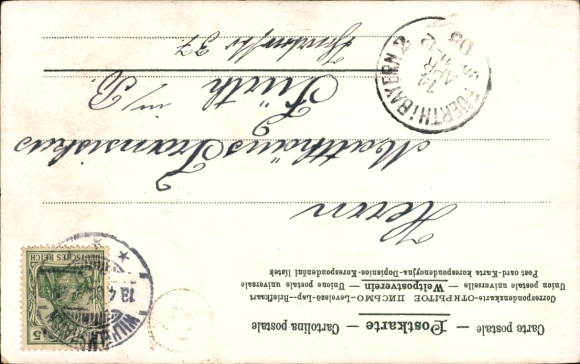 Carte postale — Postkarte — Cartolina postale
Correspondenzkarte-ОТКРЫТОЕ ПИСЬМО-Levelező-Lap-Briefkaart
Union postale universelle Weltpostverein Unione postale universale
Post card-Karta korespondencyjna-Dopisnice-Korespondenční lístek
Herrn
Matthäus Fransiskus
Fürth
i/B.
37
DEUTSCHES REICH
5
FUERTH i/BAYERN 2
14
APR
05